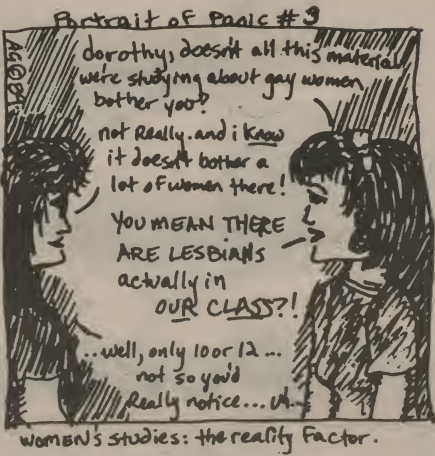 Portrait of Panic #3
dorothy, doesn't all this material
we're studying about gay women
bother you?
not Really. and i know
it doesn't bother a
lot of women there!
YOU MEAN THERE
ARE LESBIANS
actually in
OUR CLASS?!
..well, only 10 or 12 ...
not so you'd
Really notice...
women's studies: the reality Factor.